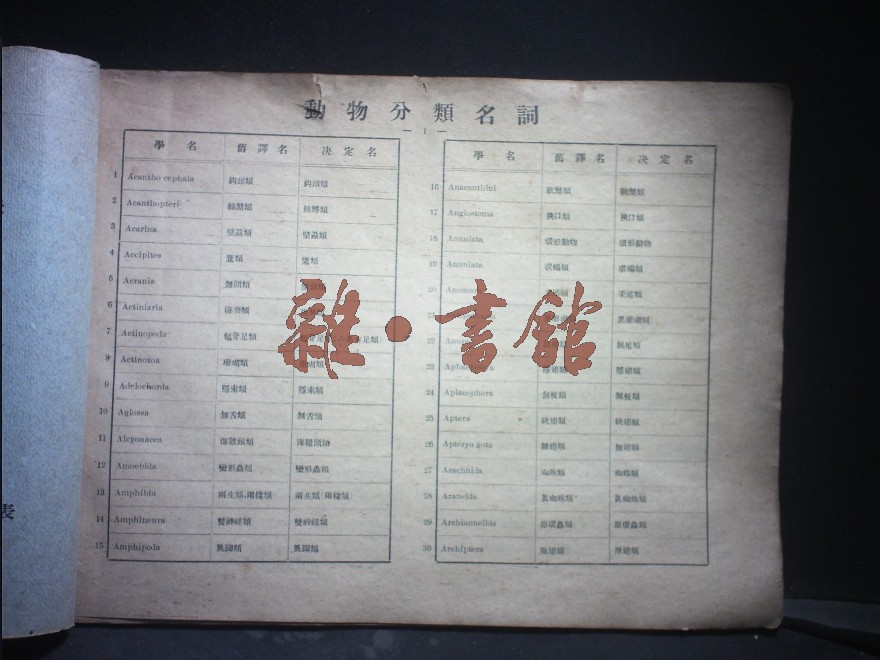 動物分類名詞
— 1 —
學名 舊譯名 決定名
1 Acantho cephala 鈎頭類 鈎頭類
2 Acanthopteri 棘鰭類 棘鰭類
3 Acarina 壁蝨類 壁蝨類
4 Accipites
5 Acrania 無頭類
6 Actiniaria 海葵類
7 Actinopoda 足類 足類)
8 Actinozoa 珊瑚類
9 Adelochorda 隱索類 隱索類
10 Aglossa 無舌類 無舌類
11 Alcyonacea 海雞頭類 海雞頭類
12 Amoebida 變形蟲類 變形蟲類
13 Amphibia 兩生類,兩棲類 兩生類(兩棲類)
14 Amphineura 雙神經類 雙神經類
15 Amphipoda 異脚類 異脚類
學名 舊譯名 決定名
16 Anacanthini 軟鰭類 軟鰭類
17 Angiostoma 狹口類 狹口類
18 Annulata 環形動物 環形動物
19 Annulata
20 歪尾類
21 黑珊瑚類
22 無尾類
23 隱翅類
24 Aplacophora 無板類 無板類
25 Aptera 缺翅類 缺翅類
26 Apteryo gota 無翅類 無翅類
27 Arachnida 蜘蛛類 蜘蛛類
28 Araneida 眞蜘蛛類 眞蜘蛛類
29 Archiannelida 原環蟲類 原環蟲類
30 Archiptera 原翅類 原翅類
雜·書館
表